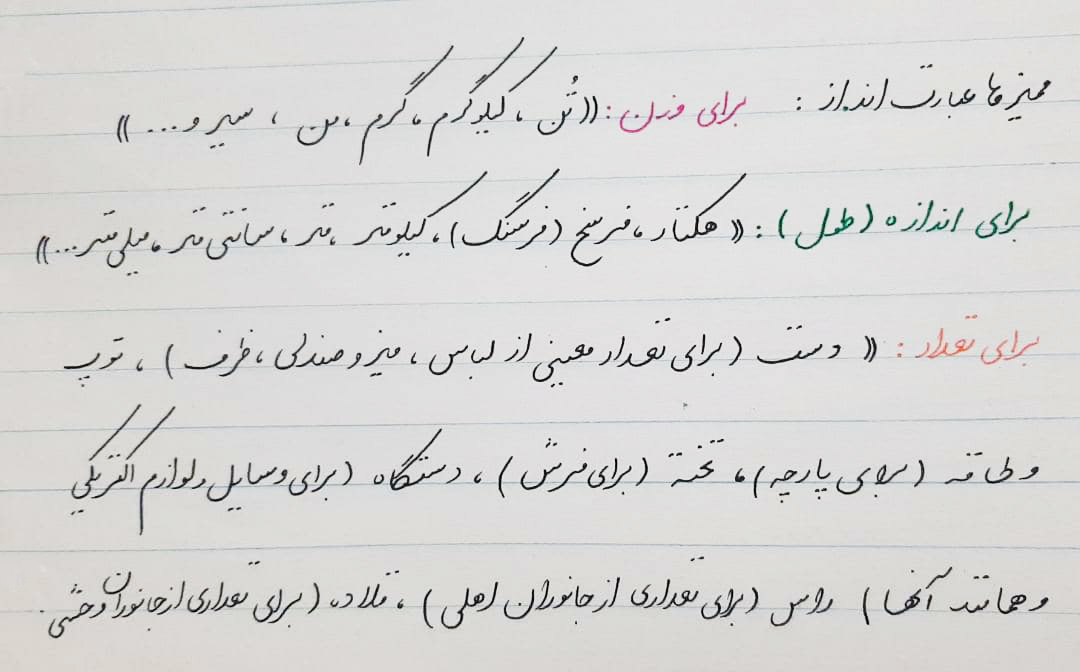 ممیزها عبارت انداز : برای وزن : «تُن ، کیلوگرم ، گرم ، من ، سیر و ... »
برای اندازه (طول) : « هکتار ، فرسخ (فرسنگ) ، کیلومتر ، متر ، سانتی متر ، میلی متر ...»
برای تعداد : « دست (برای تعداد معینی از لباس ، میز و صندلی ، ظرف) ، توپ
و طاقه (برای پارچه) ، تخته (برای فرش) ، دستگاه (برای وسایل و لوازم الکتریکی
و همانند آنها) راس (برای تعدادی از جانوران اهلی) ، قلاده (برای تعدادی از جانوران وحشی .